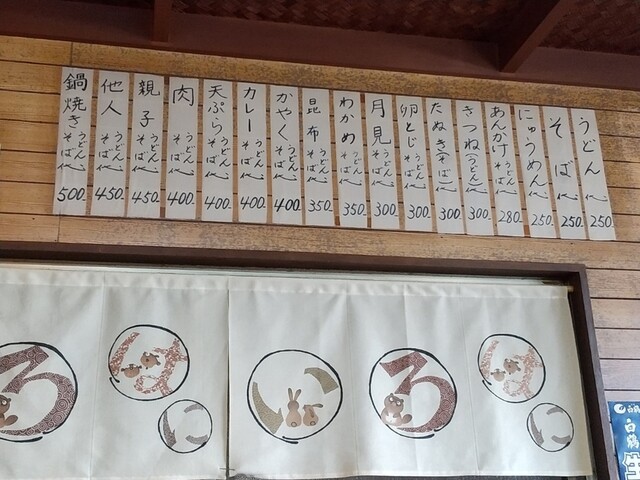 うどん 代 250
そば 代 250.
にゅうめん 代 250.
あんかけ うどん そば 代 280
きつね うどん 代 300.
たぬき そば 代 300.
卵とじ うどん そば 代 300.
月見 うどん そば 代 300
わかめ うどん そば 代 350.
昆布 うどん そば 代 350
かやく うどん そば 代 400
カレー うどん そば 代 400.
天ぷら うどん そば 代 400
肉 うどん そば 代 400.
親子 うどん そば 代 450.
他人 うどん そば 代 450.
鍋焼き うどん そば 代 500.
ろ
ろ
白鶴
白鶴
生